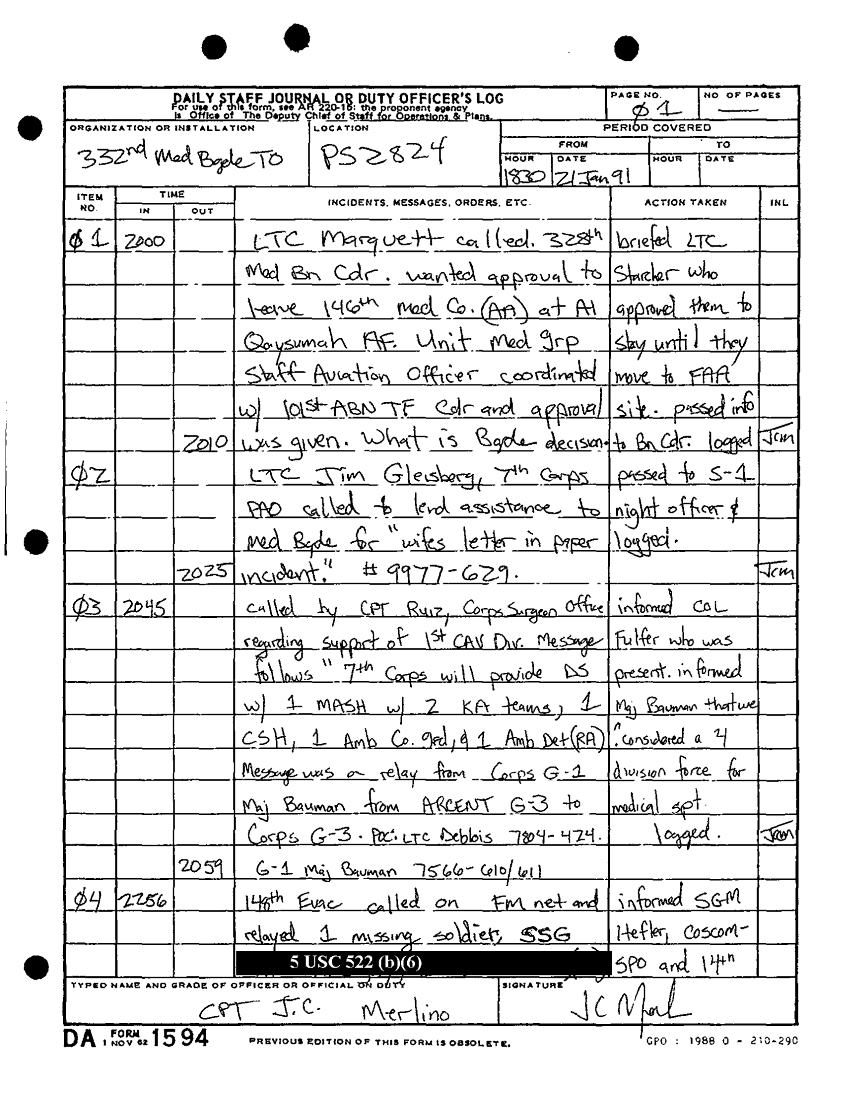 DAILY STAFF JOURNAL OR DUTY OFFICER'S LOG
For use of this form, see AR 220-15: the proponent agency
is Office of The Deputy Chief of Staff for Operations & Plans.
PAGE NO.
Ø1
NO OF PAGES
—
ORGANIZATION OR INSTALLATION
332nd Med Bgde TO
LOCATION
PS2824
PERIOD COVERED
FROM TO
HOUR DATE HOUR DATE
1830 21 Jan 91
ITEM NO. TIME INCIDENTS, MESSAGES, ORDERS, ETC. ACTION TAKEN INL
IN OUT
Ø1 2000 LTC Marquett called. 328th briefed LTC
Med Bn Cdr. wanted approval to Starcher who
leave 146th Med Co. (AA) at Al approved them to
Qaysumah AF. Unit Med grp stay until they
Staff Aviation Officer coordinated move to FAA
w/ 101st ABN TF Cdr and approval site. passed info
2010 was given. What is Bgde decision. to Bn Cdr. logged Jcm
Ø2 LTC Jim Gleisberg, 7th Corps passed to S-1
PAO called to lend assistance to night officer &
Med Bgde for "wifes letter in paper logged.
2025 incident." # 9977-629. Jcm
Ø3 2045 called by CPT Ruiz, Corps Surgeon Office informed COL
regarding support of 1st CAV Div. Message Fulfer who was
follows "7th Corps will provide DS present. informed
w/ 1 MASH w/ 2 KA teams, 1 Maj Bauman that we
CSH, 1 Amb Co. grd, & 1 Amb Det (RA) considered a 4
Message was on relay from Corps G-1 division force for
Maj Bauman from ARCENT G-3 to medical spt.
Corps G-3. POC: LTC Deblois 7804-424. logged. Jcm
2059 G-1 Maj Bauman 7566-610/611
Ø4 2256 148th Evac called on FM net and informed SGM
relayed 1 missing soldier, SSG Hefler, Coscom-
5 USC 522 (b)(6) SPO and 14th
TYPED NAME AND GRADE OF OFFICER OR OFFICIAL ON DUTY
CPT J.C. Merlino
SIGNATURE
DA FORM 1594
1 NOV 62
PREVIOUS EDITION OF THIS FORM IS OBSOLETE.
GPO : 1988 O - 210-290